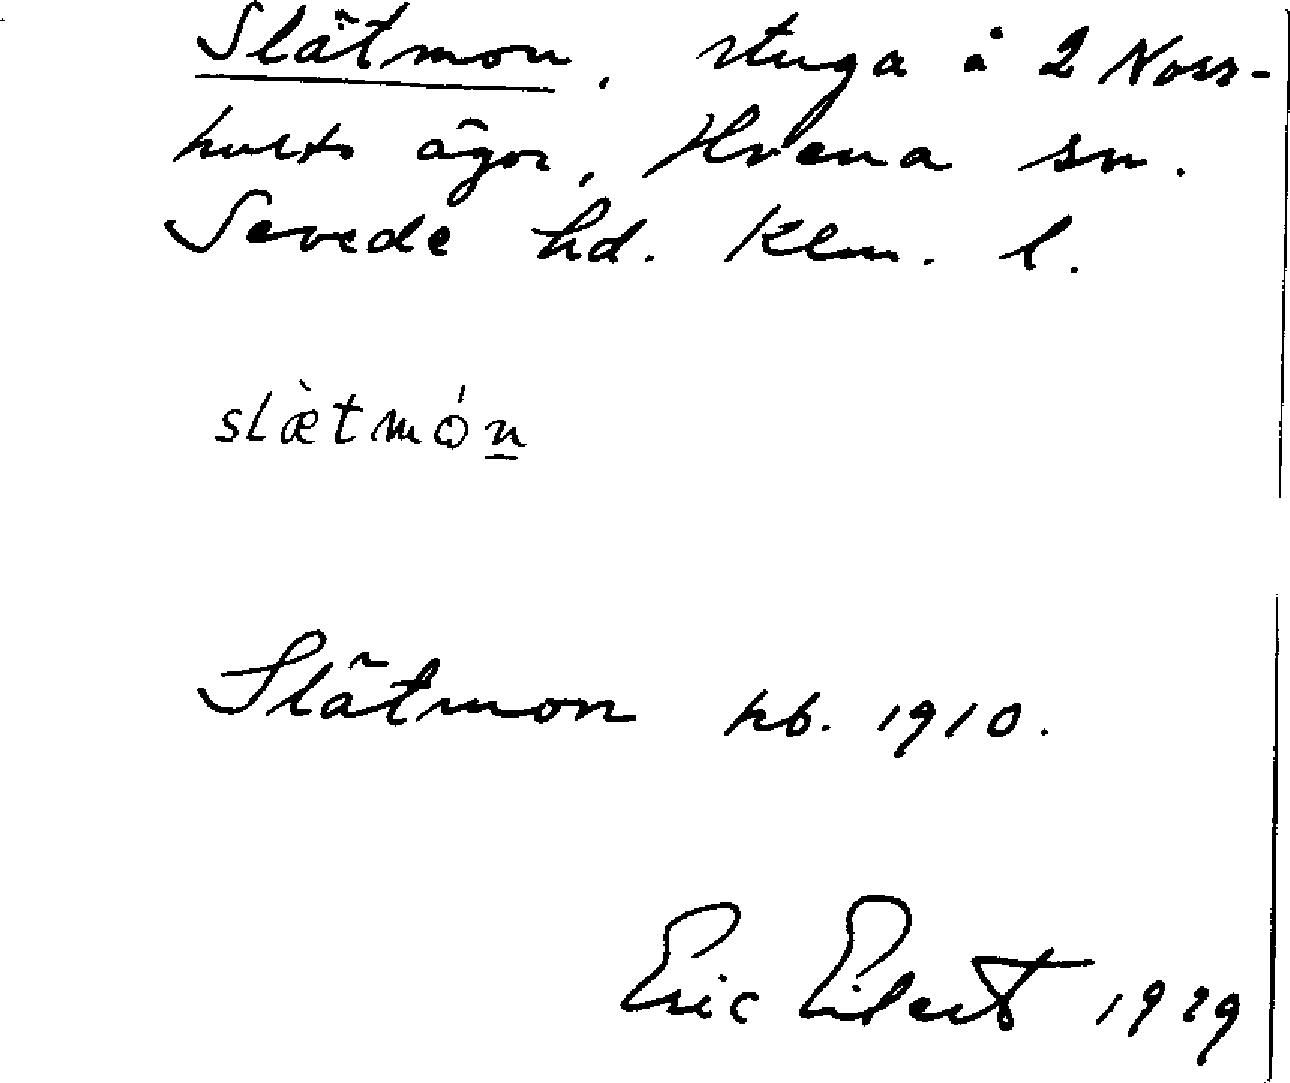 Slätmon, stuga å 2 Norr-
hults ägor, Hvena sn.
Sevede hd. Klm. l.
slæ̀tmó̤n̲
Slätmon hb. 1910.
Eric Eilert 1929